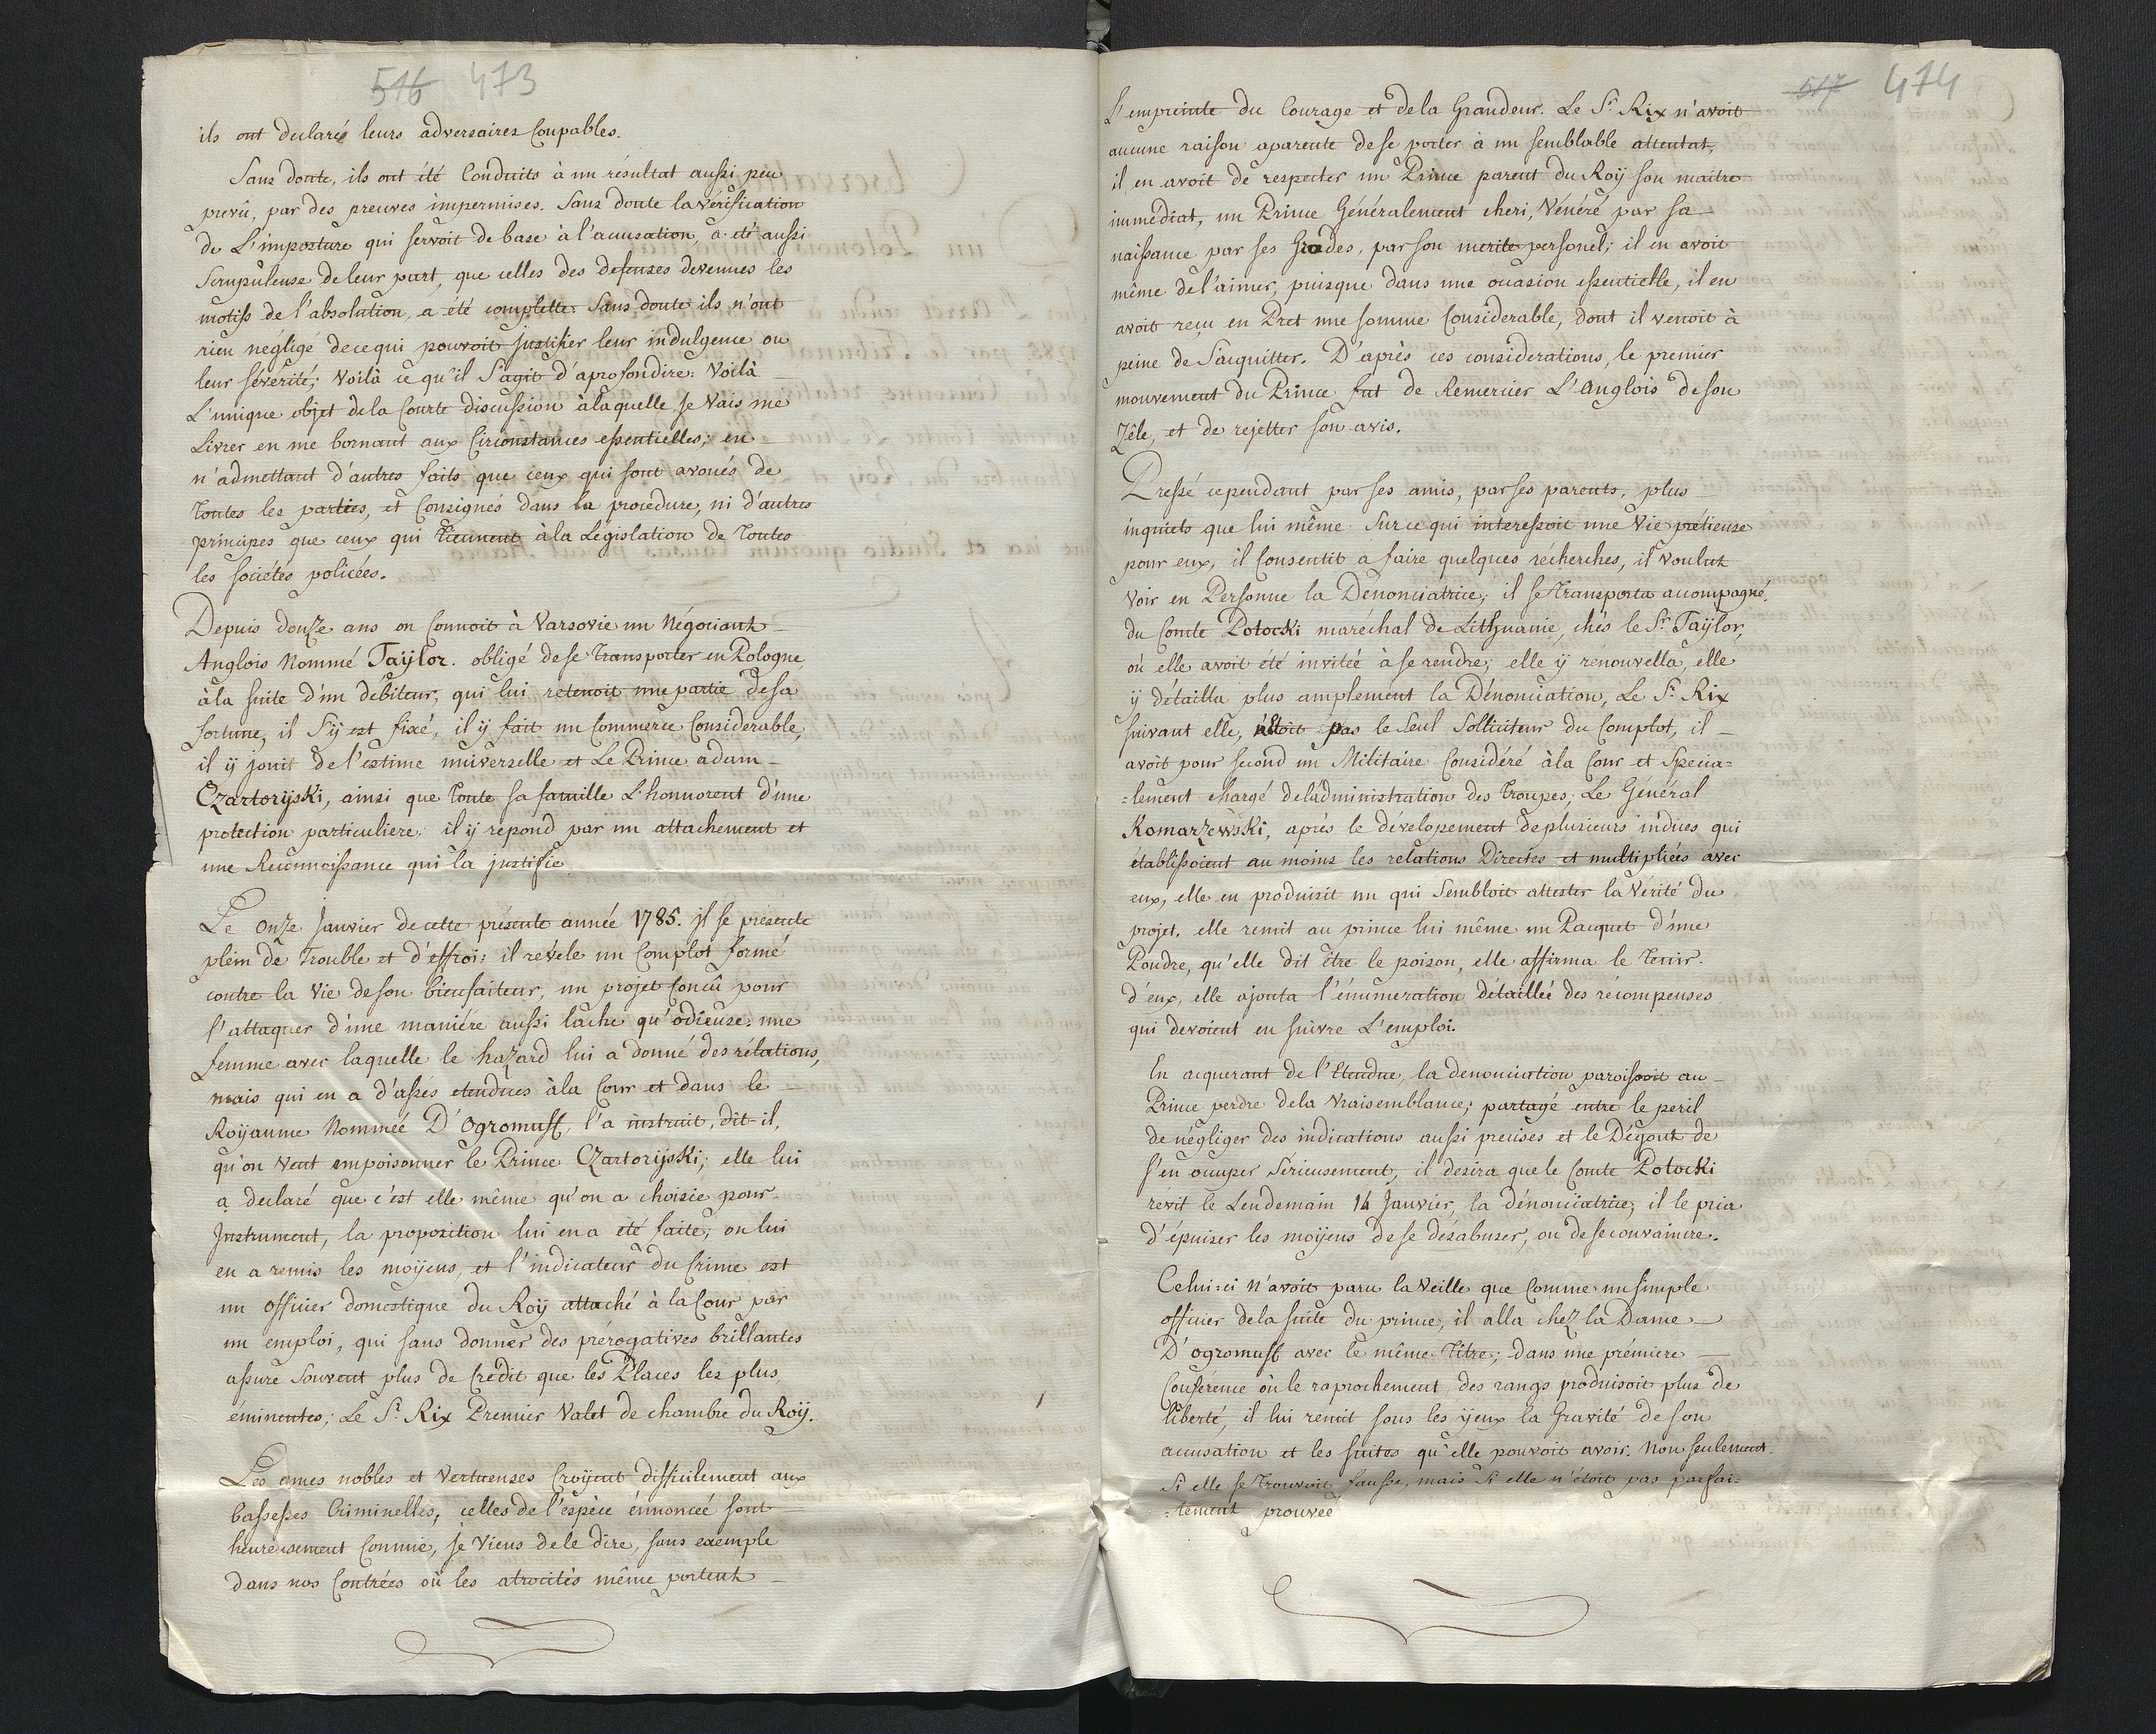 516 473
ils ont declarés leurs adversaires Coupables.
Sans doute, ils ont été Conduits à un résultat aussi peu
prevû, par des preuves impermises. Sans doute la vérification
de L'imposture qui servoit de base à l'accusation, a été aussi
Scrupuleuse de leur part, que celles des defenses devenues les
motifs de l'absolution, a été complette. Sans doute ils n'ont
rien négligé de ce qui pouvoit justifier leur indulgence ou
leur sévérité; Voilà ce qu'il S'agit d'aprofondire: Voilà
L'unique objet de la Courte discussion à laquelle je Vais me
Livrer en me bornant aux Circonstances essentielles; en
n'admettant d'autres faits que ceux qui sont avoués de
Toutes les parties, et Consignés dans la procedure, ni d'autres
principes que ceux qui tiennent à la Législation de Toutes
les sociétés policées.
Depuis douze ans on Connoit à Varsovie un Négociant
Anglois Nommé Taÿlor. obligé de se Transporter en Pologne
à la suite d'un débiteur, qui lui retenoit une partie de sa
fortune, il S'ÿ est fixé, il ÿ fait un Commerce Considerable,
il ÿ jouit de l'estime universelle et Le Prince adam
Czartorÿski, ainsi que Toute sa famille L'honnorent d'une
protection particuliere; il ÿ répond par un attachement et
une Reconnoissance qui la justifie
Le onze Janvier de cette présente année 1785. il se présente
plein de Trouble et d'effroi: il révele un Complot formé
contre la Vie de son bienfaiteur, un projet Concû pour
l'attaquer d'une maniére aussi lache qu'odieuse. une
femme avec laquelle le hazard lui a donné des rélations,
mais qui en a d'assés etendues à la Cour et dans le
Roÿaume Nommée D'Ogromuff, l'a instruit, dit-il,
qu'on Veut empoisonner le Prince Czartorÿski; elle lui
a declaré que c'est elle même qu'on a choisie pour
Instrument, la proposition lui en a été faite; on lui
en a remis les moÿens, et l'indicateur du Crime est
un officier domestique du Roÿ attaché à la Cour par
un emploi, qui sans donner des prérogatives brillantes
assure Souvent plus de Credit que les Places les plus
éminentes; Le Sr. Rix Premier Valet de chambre du Roÿ.
Les ames nobles et Vertueuses Croÿent difficilement aux
bassesses Criminelles, celles de l'espèce énnoncée sont
heureusement Comme, je Viens de le dire, sans exemple
dans nos Contrées où les atrocités même portent
517 474
L'empreinte du Courage et de la Grandeur. Le Sr. Rix n'avoit
aucune raison aparente de se porter à un semblable attentat,
il en avoit de respecter un Prince parent du Roÿ son maitre
immédiat, un Prince Généralement cheri, Vénéré par sa
naissance par ses Grades, par son merite personel; il en avoit
même de l'aimer, puisque dans une occasion essentielle, il en
avoit reçu en Pret une somme Considerable, dont il venoit à
peine de S'acquitter. D'après ces considerations, le premier
mouvement du Prince fut de Remercier L'anglois de son
Zêle, et de rejetter son avis.
Pressé cependant par ses amis, par ses parents, plus
inquiets que lui même Sur ce qui interessoit une Vie prétieuse
pour eux, il Consentit a faire quelques récherches, il voulut
Voir en Personne la Dénonciatrice; il se Transporta accompagné
du Comte Potocki maréchal de Lithuanie, chés le Sr. Taÿlor,
où elle avoit été invitée à se rendre; elle ÿ rénouvella, elle
ÿ détailla plus amplement la Dénonciation, Le Sr. Rix
suivant elle, n'étoit pas le Seul Solliciteur du Complot, il
avoit pour second un Militaire Considéré à la Cour et Specia=
=lement chargé de l'administration des Troupes; Le Général
Komarzewski, après le dévelopement de plusieurs indices qui
établissoient au moins les relations Directes et multipliées avec
eux, elle en produisit un qui Sembloit attester la Vérité du
projet. elle remit au prince lui même un Pacquet d'une
Poudre, qu'elle dit être le poison, elle affirma le Tenir
d'eux, elle ajouta l'énumeration détaillée des récompenses
qui devoient en suivre L'emploi.
En acquerant de l'Etendue, la denonciation paroissoit au
Prince perdre de la Vraisemblance; partagé entre le peril
de négliger des indications aussi precises et le Dégout de
s'en occuper Sérieusement, il desira que le Comte Potocki
revit le Lendemain 14 Janvier, la dénonciatrice; il le pria
d'épuiser les moÿens de se désabuser, ou de se convaincre.
Celui:ci N'avoit paru la Veille que Comme un simple
officier de la suite du prince, il alla chez la Dame
D'ogromuff avec le même Titre; dans une prémiere
Conférence où le raprochement des rangs produisoit plus de
liberté, il lui remit sous les ÿeux la Gravité de son
accusation et les suites qu'elle pouvoit avoir, Non seulement
Si elle se trouvoit fausse, mais Si elle n'étoit pas parfai=
=tement prouvée